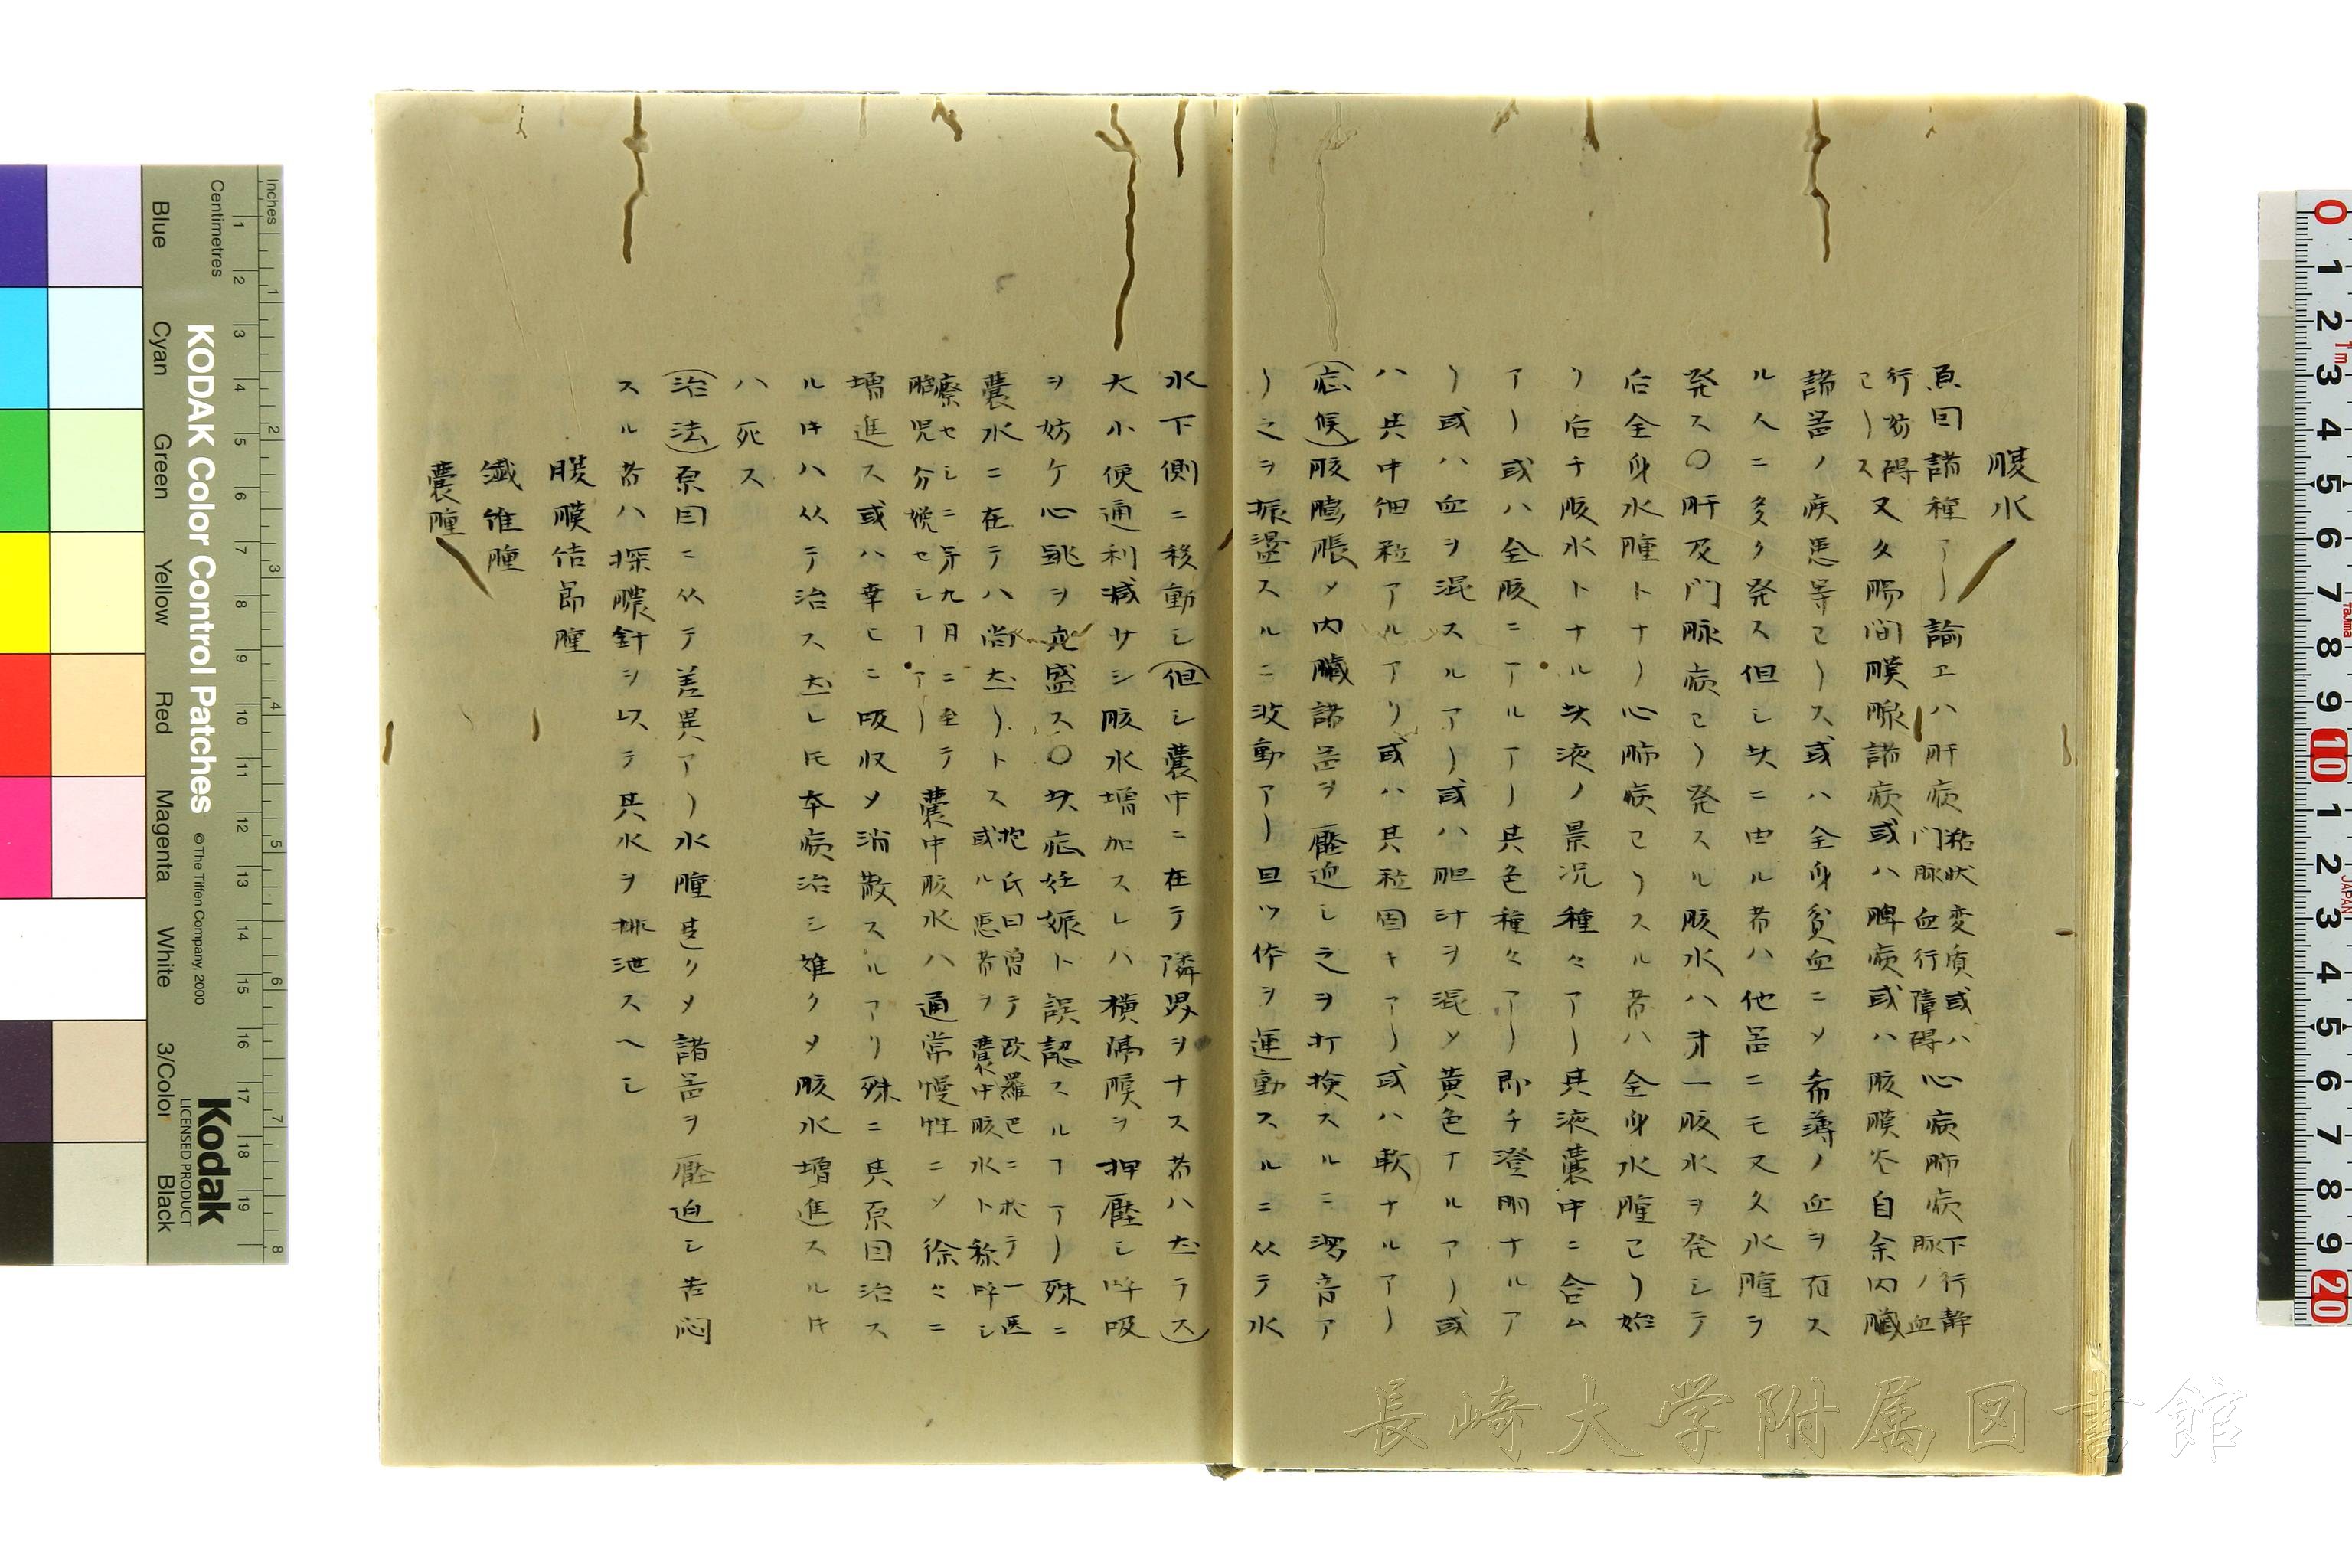 腹水
原因諸種アリ諭ヱハ肝病粘状変質或ハ門脉血行障碍心病肺病下行静脉ノ血
行妨碍ヨリス又久腸間膜腺諸病或ハ脾病或ハ腹膜炎自余内臓
諸器ノ疾患等ヨリス或ハ全身貧血ニメ希薄ノ血ヲ有ス
ル人ニ多ク発ス但シ其ニ由ル者ハ他器ニモ又久水腫ヲ
発ス〇肝及門脉病ヨリ発スル腹水ハ才一腹水ヲ発シテ
后全身水腫トナリ心肺病ヨリスル者ハ全身水腫ヨリ始
リ后チ腹水トナル其液ノ景況種々アリ其液囊中ニ含ム
アリ或ハ全腹ニアルアリ其色種々アリ即チ澄明ナルア
リ或ハ血ヲ混スルアリ或ハ胆汁ヲ混メ黄色ナルアリ或
ハ其中細粒アルアリ或ハ其粒固キアリ或ハ軟ナルアリ
(症候)腹膨脹メ内臓諸器ヲ壓迫シ之ヲ打検スルニ濁音ア
リ之ヲ振盪スルニ波動アリ且ツ体ヲ運動スルニ从テ水
水下側ニ移動シ(但シ囊中ニ在テ隣界ヲナス者ハ然ラス)
大小便通利減少シ腹水増加スレハ横隔膜ヲ押壓シ呼吸
ヲ妨ケ心跳ヲ亢盛ス〇其症妊娠ト誤認スルヿアリ殊ニ
囊水ニ在テハ尚然リトス抱氏曰曽テ欧羅巴ニ於テ一医或ル患者ヲ囊中腹水ト称呼シ
療セシニ才九月ニ至テ臨児分娩セシヿアリ囊中腹水ハ通常慢性ニメ徐々ニ
増進ス或ハ幸ヒニ吸収メ消散スルアリ殊ニ其原因治ス
ルキハ从テ治ス然レ𪜈本病治シ難クメ腹水増進スルキ
ハ死ス
(治法)原因ニ从テ差異アリ水腫甚クメ諸器ヲ壓迫シ苦悶
スル者ハ探膿針ヲ以テ其水ヲ排泄スヘシ
腹膜結節腫
纎維腫
囊腫
Inches
Centimetres
Blue
Cyan
Green
Yellow
Red
Magenta
White
3/Color
Black
KODAK Color Control Patches
©The Tiffen Company, 2000
Kodak
LICENSED PRODUCT
JAPAN
長崎大学附属図書館